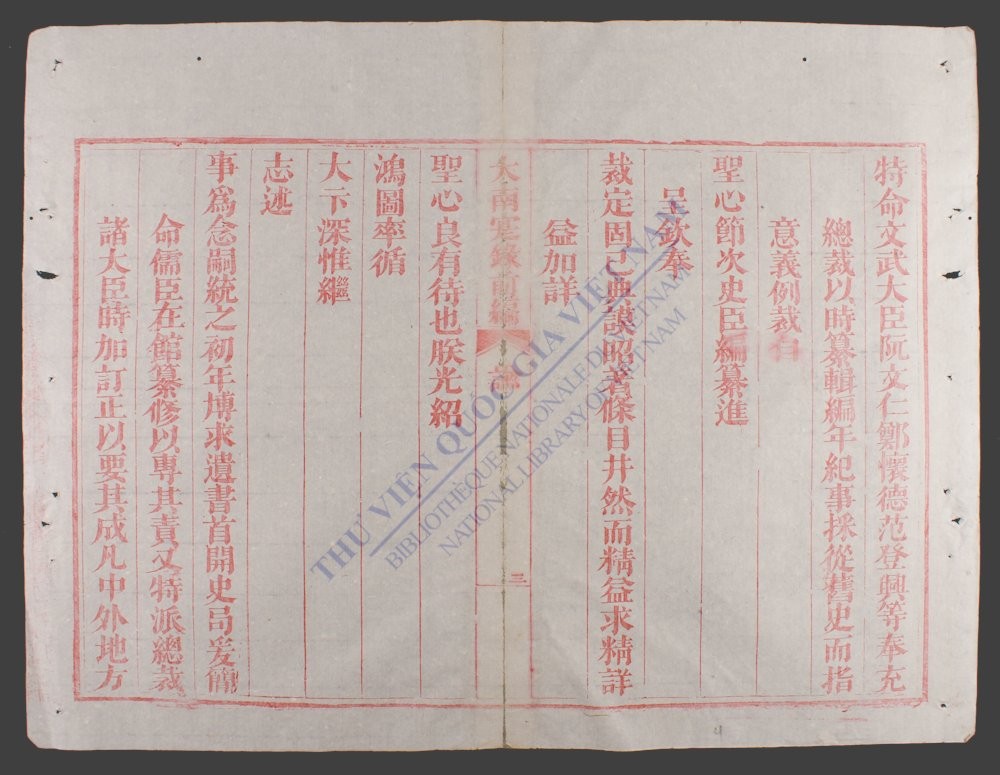 特命文武大臣阮文仁鄭懷德范登興等奉充
總裁以時纂輯編年紀事採從舊史而指
意義例裁自
聖心節次史臣編纂進
呈欽奉
裁定固已典謨昭著條目井然而精益求精詳
益加詳
大南寔錄前編
三
聖心良有待也朕光紹
鴻圖率循
大卞深惟繼
志述
事爲念嗣統之初年博求遺書首開史局爰簡
命儒臣在館纂修以專其責又特派總裁
諸大臣時加訂正以要其成凡中外地方
THƯ VIỆN QUỐC GIA VIỆT NAM
BIBLIOTHÈQUE NATIONALE DU VIETNAM
NATIONAL LIBRARY OF VIETNAM